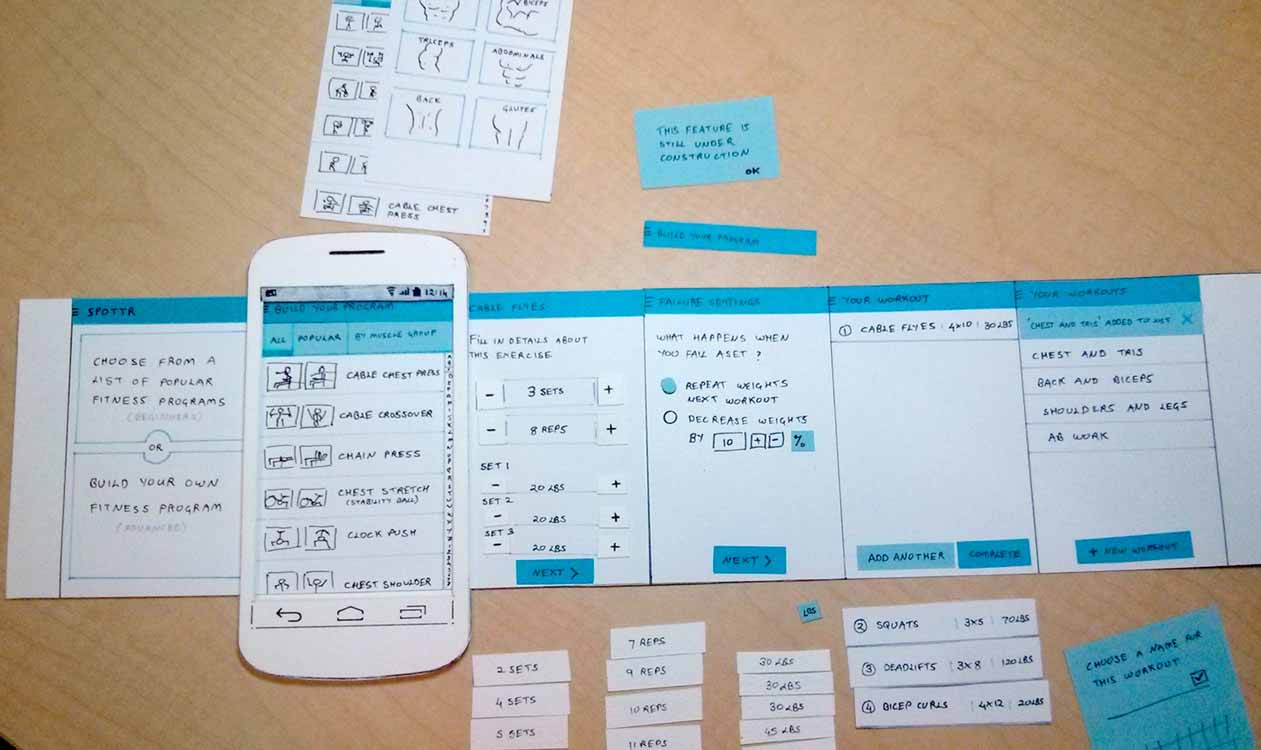 BICEPS
TRICEPS
ABDOMINALS
BACK
GLUTES
CABLE CHEST
PRESS
THIS FEATURE IS
STILL UNDER
CONSTRUCTION
OK
BUILD YOUR PROGRAM
SPOTTR
CHOOSE FROM A
LIST OF POPULAR
FITNESS PROGRAMS
(BEGINNERS)
OR
BUILD YOUR OWN
FITNESS PROGRAM
(ADVANCED)
12:14
BUILD YOUR PROGRAM
ALL POPULAR BY MUSCLE GROUP
CABLE CHEST PRESS
CABLE CROSSOVER
CHAIN PRESS
CHEST STRETCH
(STABILITY BALL)
CLOCK PUSH
CHEST SHOULDER
CABLE FLYES
FILL IN DETAILS ABOUT
THIS EXERCISE
- 3 SETS +
- 8 REPS +
SET 1
- 20 LBS +
SET 2
- 20 LBS +
SET 3
- 20 LBS +
NEXT >
FAILURE SETTINGS
WHAT HAPPENS WHEN
YOU FAIL A SET ?
REPEAT WEIGHTS
NEXT WORKOUT
DECREASE WEIGHTS
BY 10 + - %
NEXT >
YOUR WORKOUT
1 CABLE FLYES | 4X10 | 30LBS
ADD ANOTHER COMPLETE
YOUR WORKOUTS
'CHEST AND TRIS' ADDED TO LIST X
CHEST AND TRIS
BACK AND BICEPS
SHOULDERS AND LEGS
AB WORK
+ NEW WORKOUT
2 SETS
4 SETS
5 SETS
7 REPS
9 REPS
10 REPS
11 REPS
LBS
30 LBS
30 LBS
30 LBS
45 LBS
2 SQUATS | 3X5 | 70LBS
3 DEADLIFTS | 3X8 | 120LBS
4 BICEP CURLS | 4X12 | 20LBS
CHOOSE A NAME FOR
THIS WORKOUT